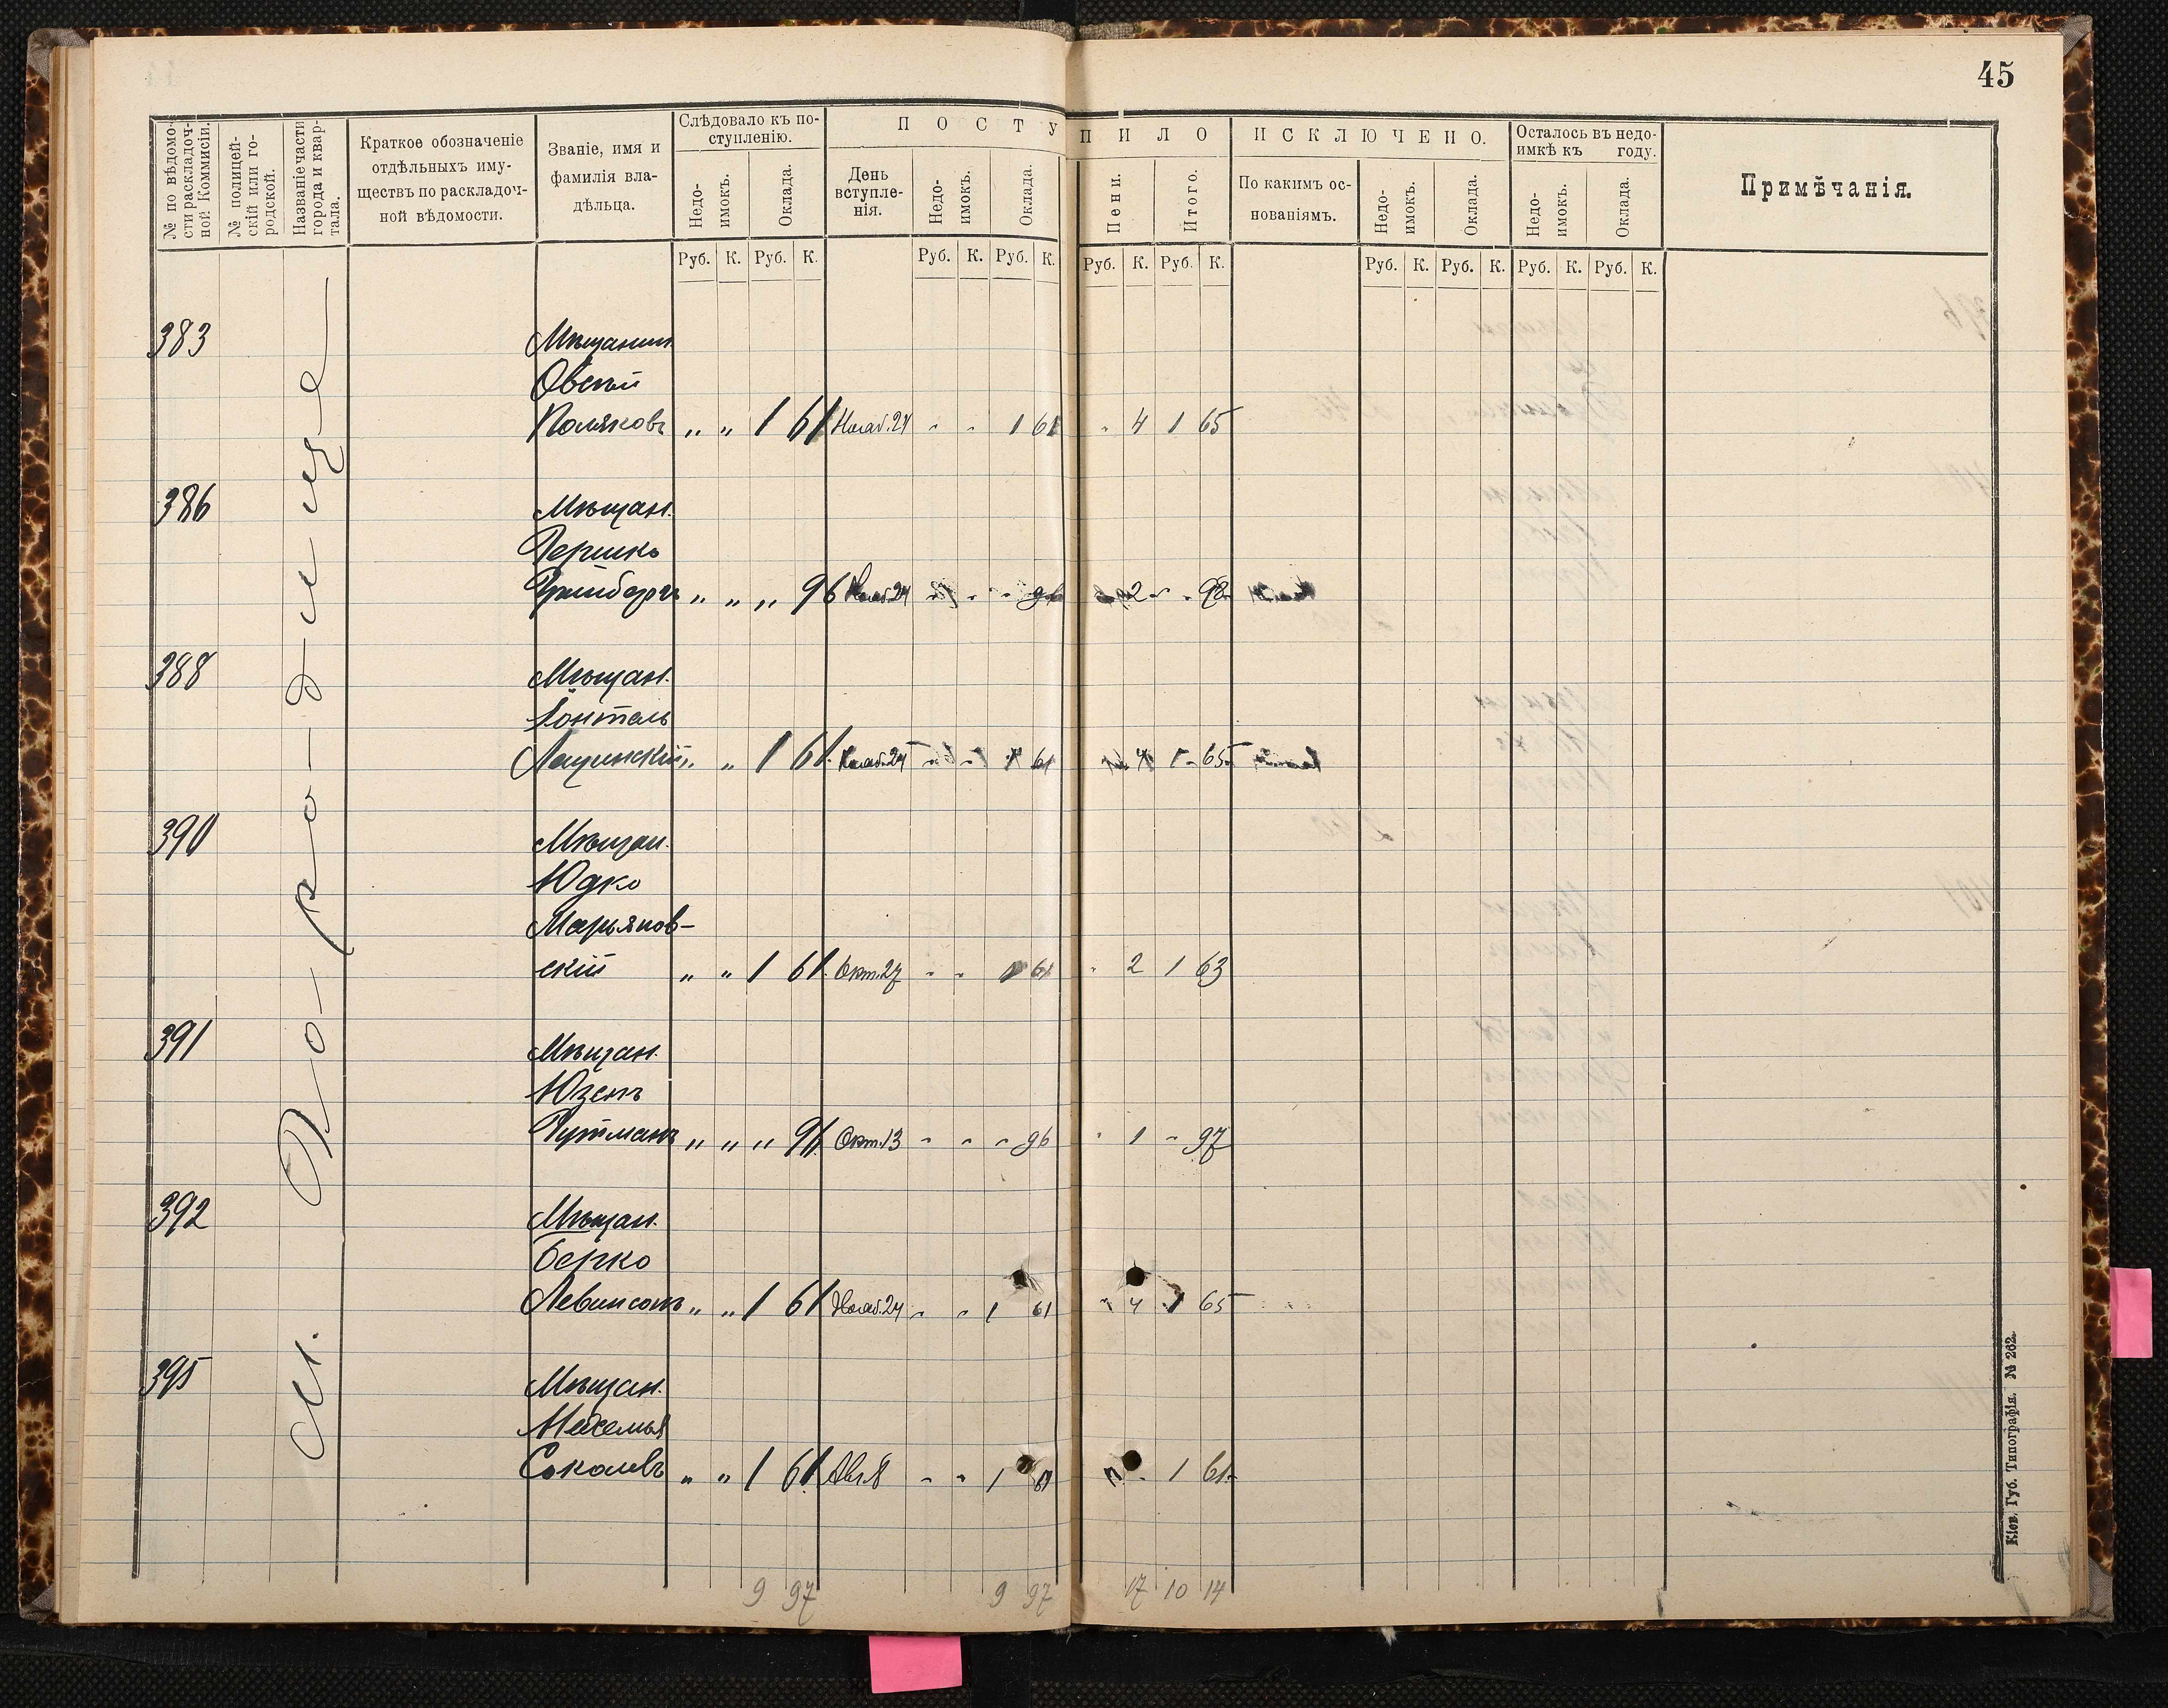 45
№ по вѣдомо-
сти раскладоч-
ной Коммисіи.
№ полицей-
скій или го-
родской.
Названіе части
города и квар-
тала.
Краткое обозначеніе
отдѣльныхъ иму-
ществъ по раскладоч-
ной вѣдомости.
Званіе, имя и
фамилія вла-
дѣльца.
Слѣдовало къ по-
ступленію.
Недо-
имокъ.
Оклада.
ПОСТУПИЛО
День
вступле-
нія.
Недо-
имокъ.
Оклада.
Пени.
Итого.
ИСКЛЮЧЕНО.
По какимъ ос-
нованіямъ.
Недо-
имокъ.
Оклада.
Осталось въ недо-
имкѣ къ году.
Недо-
имокъ.
Оклада.
Примѣчанія.
Руб. К. Руб. К. Руб. К. Руб. К. Руб. К. Руб. К. Руб. К. Руб. К. Руб. К. Руб. К.
М. Го-ро-дище
383 Мѣщанин
Овсей
Поляковъ „ „ 1 61 Нояб. 24 " " 1 61 " 4 1 65
386 Мѣщан.
Гершко
Гринбергъ „ „ „ 96 Нояб. 24 " " " 96 2 " 98
388 Мѣщан.
Лащинскій „ „ 1 61 Нояб. 24 " " 1 61 4 1 65
390 Мѣщан.
Юдко
Марьянов-
скій „ „ 1 61 Окт. 27 " " 1 61 " 2 1 63
391 Мѣщан.
Гутманъ „ „ „ 96 Окт. 13 " " " 96 " 1 " 97
392 Мѣщан.
Берко
Левинсонъ „ „ 1 61 Нояб. 24 " " 1 61 " 4 1 65
395 Мѣщан.
Соколовъ „ „ 1 61 Авг. 8 " " 1 61 " 1 61
9 97 9 97 17 10 14
Кіев. Губ. Типографія. № 262.